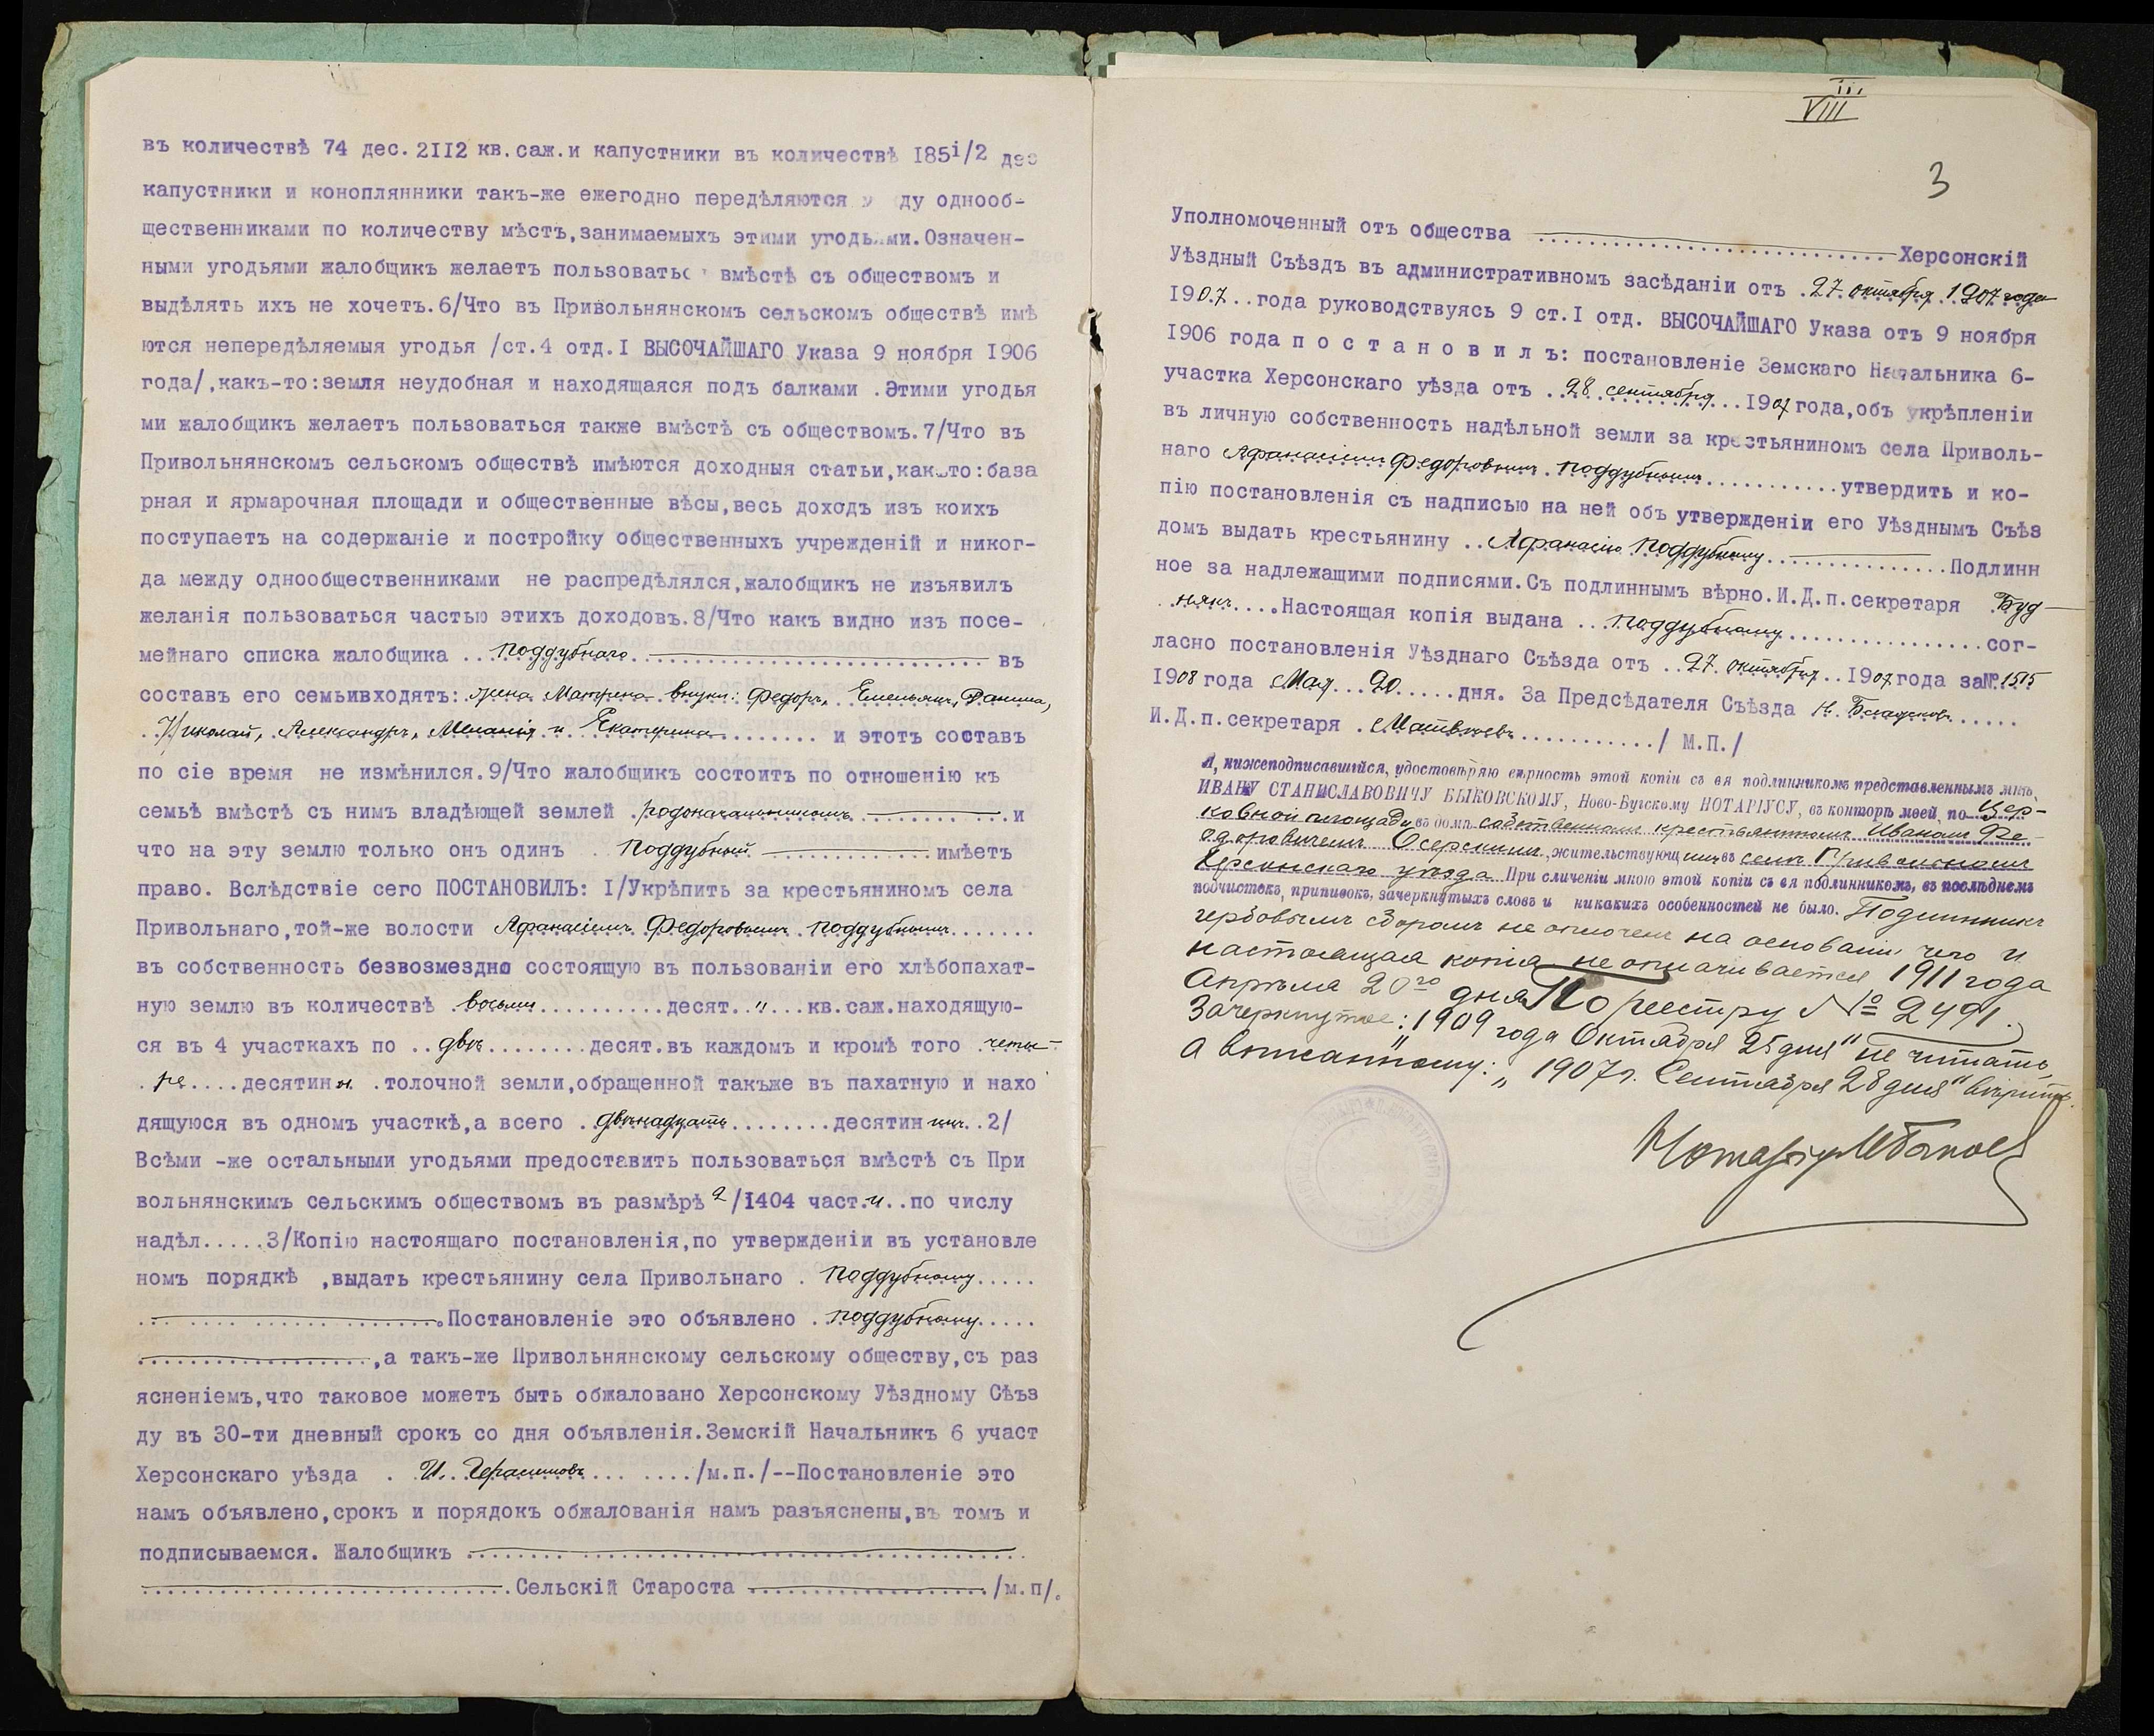 въ количествѣ 74 дес. 2II2 кв.саж.и капустники въ количествѣ I85i/2 дес
капустники и коноплянники такъ-же ежегодно передѣляются ду однооб-
щественниками по количеству мѣстъ,занимаемыхъ этими угодьями.Означен-
ными угодьями жалобщикъ желаетъ пользоватьс вмѣстѣ съ обществомъ и
выдѣлять ихъ не хочетъ.6/Что въ Привольнянскомъ сельскомъ обществѣ имѣ
ются непередѣляемыя угодья /ст.4 отд.I ВЫСОЧАЙШАГО Указа 9 ноября I906
года/,какъ-то:земля неудобная и находящаяся подъ балками .Этими угодья
ми жалобщикъ желаетъ пользоваться также вмѣстѣ съ обществомъ.7/Что въ
Привольнянскомъ сельскомъ обществѣ имѣются доходныя статьи,как-то:база
рная и ярмарочная площади и общественные вѣсы,весь доходъ изъ коихъ
поступаетъ на содержаніе и постройку общественныхъ учрежденій и никог-
да между однообщественниками не распредѣлялся,жалобщикъ не изъявилъ
желанія пользоваться частью этихъ доходовъ.8/Что какъ видно изъ посе-
мейнаго списка жалобщика ... Поддубнаго ... въ
составъ его семьивходятъ: жена Матрена внуки: Федоръ, Емельянъ, Данила,
Николай, Александръ, Меланія и Екатерина ........ и этотъ составъ
по сіе время не измѣнился.9/Что жалобщикъ состоитъ по отношенію къ
семьѣ вмѣстѣ съ нимъ владѣющей землей .родоначальникомъ ........ и
что на эту землю только онъ одинъ Поддубный ............ имѣетъ
право. Вслѣдствіе сего ПОСТАНОВИЛЪ: I/Укрѣпить за крестьяниномъ села
Привольнаго,той-же волости Афанасіемъ Федоровымъ Поддубнымъ.......
въ собственность безвозмездно состоящую въ пользованіи его хлѣбопахат-
ную землю въ количествѣ .восьми..........десят..„...кв.саж.находящую-
ся въ 4 участкахъ по ..двѣ.........десят.въ каждомъ и кромѣ того .четы-
. ре....десятинн. .толочной земли,обращенной такъже въ пахатную и нахо
дящуюся въ одномъ участкѣ,а всего .двѣнадцать........десятин ..2/
Всѣми -же остальными угодьями предоставить пользоваться вмѣстѣ съ При
вольнянскимъ сельскимъ обществомъ въ размѣрѣ 2/I404 част.и..по числу
надѣл.....3/Копію настоящаго постановленія,по утвержденіи въ установле
номъ порядкѣ ,выдать крестьянину села Привольнаго . Поддубному.....
.........................Постановленіе это объявлено .Поддубному.....
..................,а такъ-же Привольнянскому сельскому обществу,съ раз
ясненіемъ,что таковое можетъ быть обжаловано Херсонскому Уѣздному Съѣз
ду въ 30-ти дневный срокъ со дня объявленія.Земскій Начальникъ 6 участ
Херсонскаго уѣзда . И. Герасимовъ... ..../м.п./--Постановленіе это
намъ объявлено,срокъ и порядокъ обжалованія намъ разъяснены,въ томъ и
подписываемся. Жалобщикъ ........................................
.............................Сельскій Староста .................../м.п/.
III
VIII
3
Уполномоченный отъ общества ............................Херсонскій
Уѣздный Съѣздъ въ административномъ засѣданіи отъ .27.октября.1907 года
I90.7...года руководствуясь 9 ст.I отд. ВЫСОЧАЙШАГО Указа отъ 9 ноября
I906 года п о с т а н о в и л ъ: постановленіе Земскаго Начальника 6-
участка Херсонскаго уѣзда отъ ..28 сентября...I907 года,объ укрѣпленіи
въ личную собственность надѣльной земли за крестьяниномъ села Приволь-
наго Афанасіемъ Федоровымъ Поддубнымъ............утвердить и ко-
пію постановленія съ надписью на ней объ утвержденіи его Уѣзднымъ Съѣз
домъ выдать крестьянину ..Афанасію Поддубному...............Подлинн
ное за надлежащими подписями.Съ подлиннымъ вѣрно.И.Д.п.секретаря .Буд-
.някъ....Настоящая копія выдана ...Поддубному.................сог-
ласно постановленія Уѣзднаго Съѣзда отъ ..27. октября..I907 года за№.1515
I908 года .Мая...20.....дня. За Предсѣдателя Съѣзда Н. ......
И.Д.п.секретаря .Матвѣевъ.........../ М.П./
Я, нижеподписавшійся, удостовѣряю вѣрность этой копіи съ ея подлинникомъ представленнымъ мнѣ,
ИВАНУ СТАНИСЛАВОВИЧУ БЫКОВСКОМУ, Ново-Бугскому НОТАРІУСУ, въ конторѣ моей, по Цер-
ковной площади въ домѣ собственномъ крестьяниномъ Иваномъ Фе-
доровичемъ Осерскимъ, жительствующимъ въ селѣ Привольномъ
Херсонскаго уѣзда При сличеніи мною этой копіи съ ея подлинникомъ, въ послѣднемъ
подчистокъ, приписокъ, зачеркнутыхъ словъ и никакихъ особенностей не было. Подлинникъ
гербовымъ сборомъ не оплоченъ на основаніи чего и
настоящая копія не оплачивается 1911 года
Апрѣля 20го дня По реестру № 2491.
Зачеркнутое: „1909 года Октября 25 дня" не читать,
а вписанному: „1907 г. Сентября 28 дня" вѣрить.
Нотаріусъ